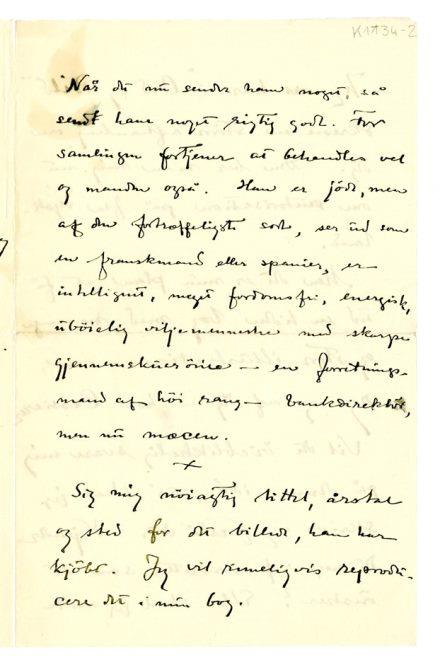 K 1834-2
Når du nu sender ham noget, så
send ham noget rigtig godt. For
samlingen fortjener at behandles vel
og manden også. Han er jöde, men
af den fortræffeligste sort, ser ud som
en franskmand eller spanier, er
intelligent, meget fordomsfri, energisk,
uböielig viljemenneske med skarpe
gjennemskuerörine – en forretnings-
mand af höi rang – bankdirektör,
men nu mæcen.
×
Sig mig nöiagtig tittel, årstal
og sted for det billede, han har
kjöbt. Jeg vil rimeligvis reprodu-
cere det i min bog.